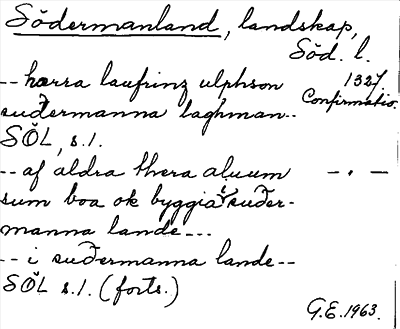 Södermanland, landskap,
Söd. l.
-- hærra laufrinz ulphson 1327
suðermanna laghman -- Confirmatio.
SÖL, s. 1.
-- af aldra thera aluum — " —
sum boa ok byggia i suðer-
manna lande ---
-- i suðermanna lande --
SÖL s. 1. (forts.)
G.E. 1963.